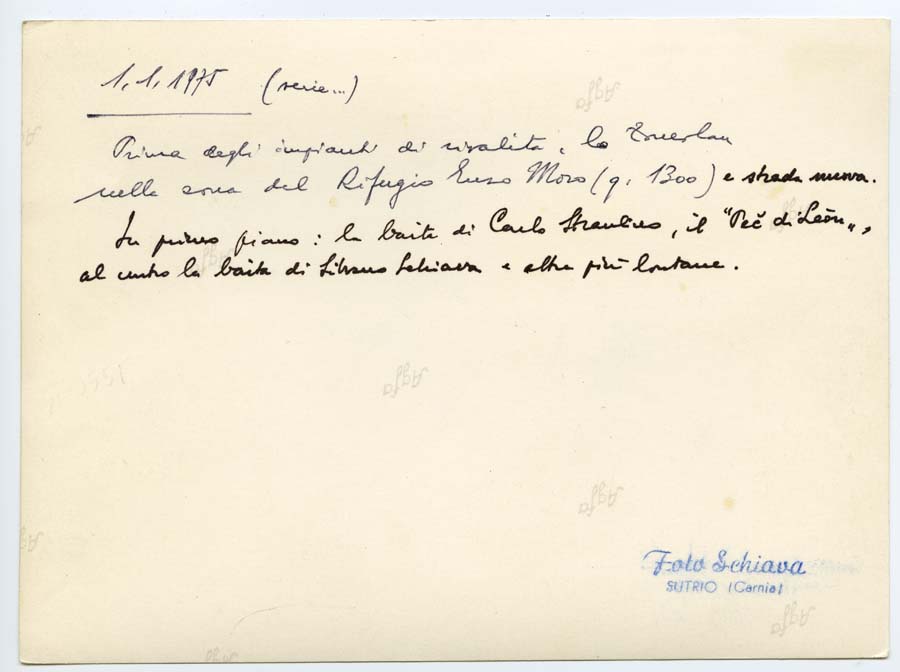 1.1.1975 (serie...)
Prima degli impianti di risalita, lo Zoncolan
nella zona del Rifugio Enzo Moro (q. 1300) e strada nuova.
In primo piano: la baita di Carlo Straulino, il "Peč di Leòn",
al centro la baita di Silvano Schiava e altre più lontane.
Agfa
Agfa
Agfa
Foto Schiava
SUTRIO (Carnia)
Agfa